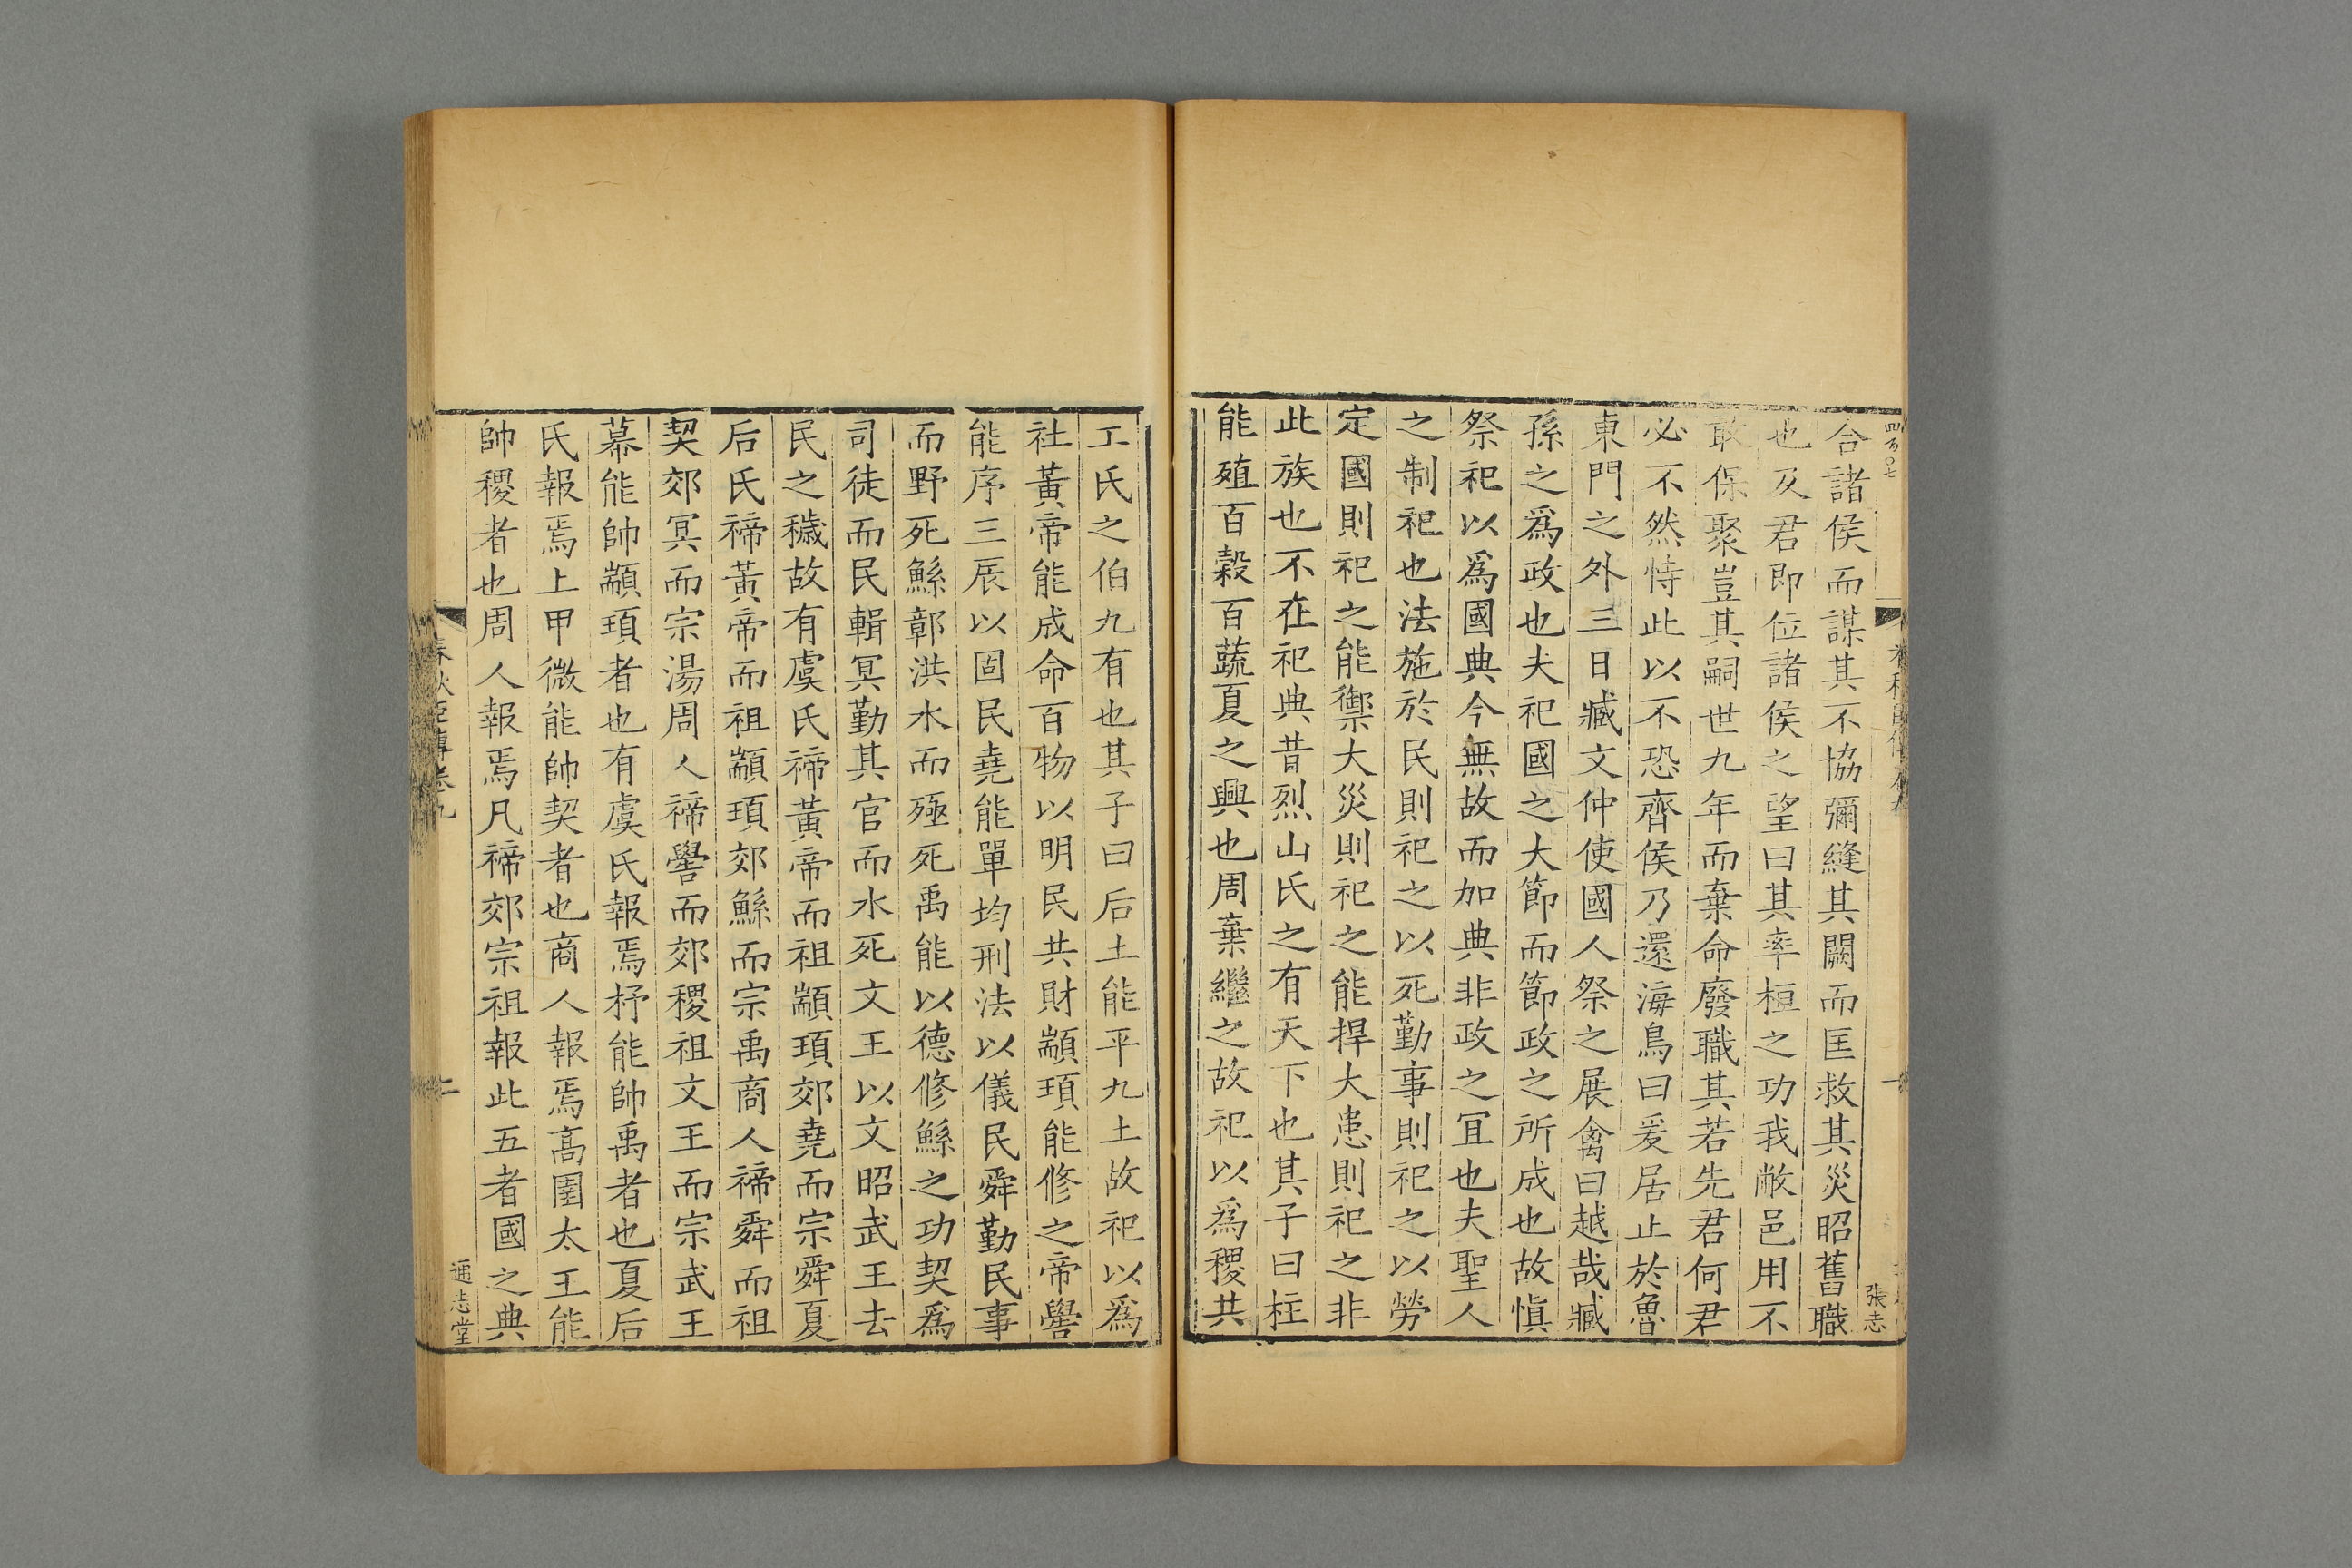 合諸侯而謀其不協彌縫其闕而匡救其災昭舊職
也及君即位諸侯之望曰其率桓之功我敝邑用不
敢保聚豈其嗣世九年而棄命廢職其若先君何君
必不然恃此以不恐齊侯乃還海鳥曰爰居止於魯
東門之外三日臧文仲使國人祭之展禽曰越哉臧
孫之爲政也夫祀國之大節而節政之所成也故慎
祭祀以爲國典今無故而加典非政之冝也夫聖人
之制祀也法施於民則祀之以死勤事則祀之以勞
定國則祀之能禦大災則祀之能捍大患則祀之非
此族也不在祀典昔烈山氏之有天下也其子曰柱
能殖百穀百蔬夏之興也周棄繼之故祀以爲稷共
張志
工氏之伯九有也其子曰后土能平九土故祀以爲
社黃帝能成命百物以明民共財顓頊能修之帝嚳
能序三辰以固民堯能單均刑法以儀民舜勤民事
而野死鯀鄣洪水而殛死禹能以德修鯀之功契爲
司徒而民輯冥勤其官而水死文王以文昭武王去
民之穢故有虞氏禘黃帝而祖顓頊郊堯而宗舜夏
后氏禘黃帝而祖顓頊郊鯀而宗禹商人禘舜而祖
契郊冥而宗湯周人禘嚳而郊稷祖文王而宗武王
幕能帥顓頊者也有虞氏報焉杼能帥禹者也夏后
氏報焉上甲微能帥契者也商人報焉高圉太王能
帥稷者也周人報焉凡禘郊宗祖報此五者國之典
通志堂